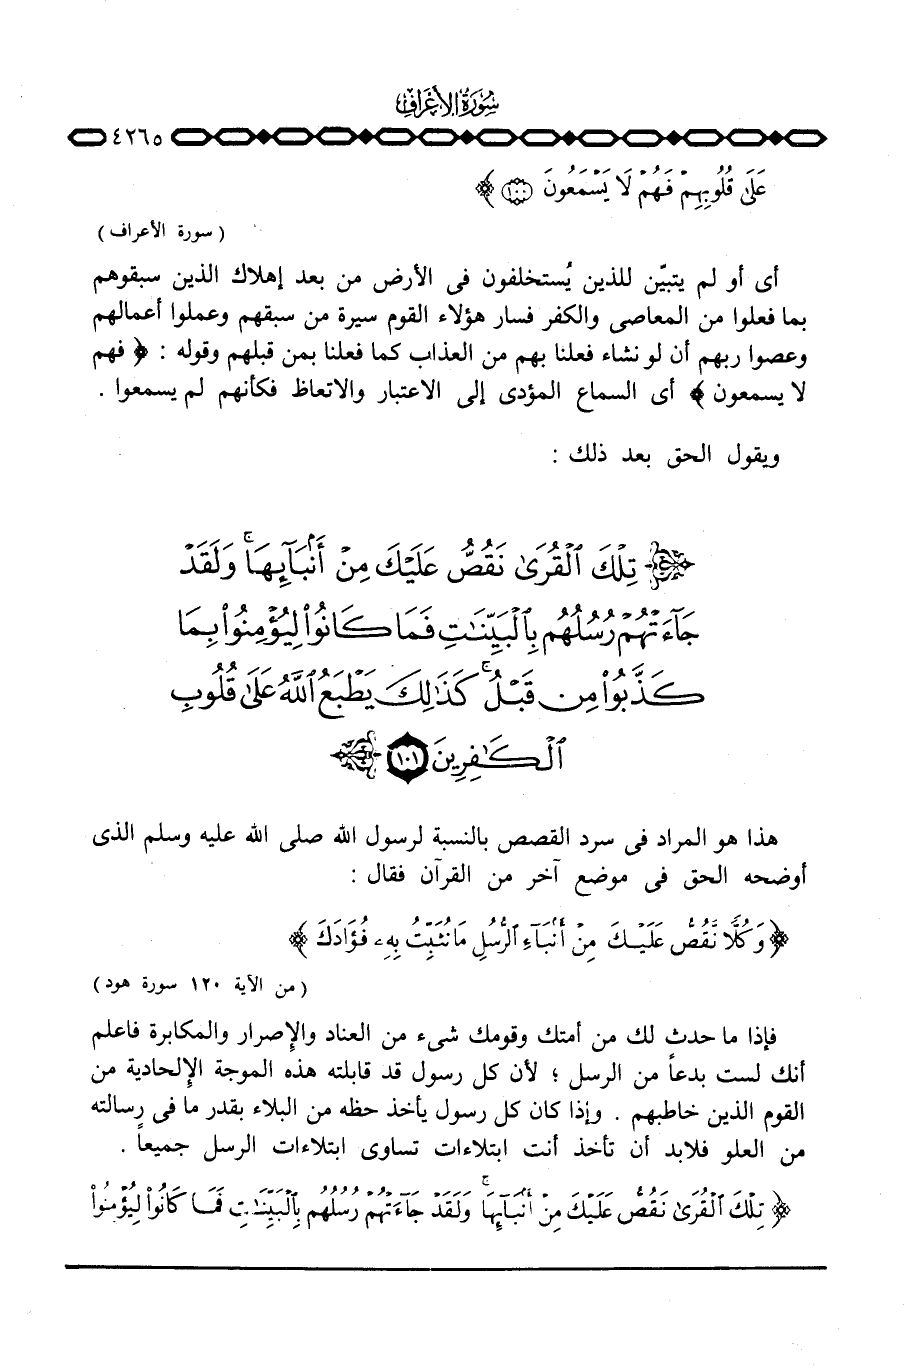 سُورَةُ الأَعْرَافِ
٤٢٦٥
عَلَىٰ قُلُوبِهِمْ فَهُمْ لَا يَسْمَعُونَ ۝١٠٠ ﴾
( سورة الأعراف )
أى أو لم يتبيّن للذين يُستخلفون فى الأرض من بعد إهلاك الذين سبقوهم
بما فعلوا من المعاصى والكفر فسار هؤلاء القوم سيرة من سبقهم وعملوا أعمالهم
وعصوا ربهم أن لو نشاء فعلنا بهم من العذاب كما فعلنا بمن قبلهم وقوله : ﴿ فهم
لا يسمعون ﴾ أى السماع المؤدى إلى الاعتبار والاتعاظ فكأنهم لم يسمعوا .
ويقول الحق بعد ذلك :
﴿ تِلْكَ ٱلْقُرَىٰ نَقُصُّ عَلَيْكَ مِنْ أَنۢبَآئِهَا ۚ وَلَقَدْ
جَآءَتْهُمْ رُسُلُهُم بِٱلْبَيِّنَٰتِ فَمَا كَانُوا۟ لِيُؤْمِنُوا۟ بِمَا
كَذَّبُوا۟ مِن قَبْلُ ۚ كَذَٰلِكَ يَطْبَعُ ٱللَّهُ عَلَىٰ قُلُوبِ
ٱلْكَٰفِرِينَ ۝١٠١ ﴾
هذا هو المراد فى سرد القصص بالنسبة لرسول الله صلى الله عليه وسلم الذى
أوضحه الحق فى موضع آخر من القرآن فقال :
﴿ وَكُلًّا نَّقُصُّ عَلَيْكَ مِنْ أَنۢبَآءِ ٱلرُّسُلِ مَا نُثَبِّتُ بِهِۦ فُؤَادَكَ ﴾
( من الآية ١٢٠ سورة هود )
فإذا ما حدث لك من أمتك وقومك شىء من العناد والإصرار والمكابرة فاعلم
أنك لست بدعاً من الرسل ؛ لأن كل رسول قد قابلته هذه الموجة الإلحادية من
القوم الذين خاطبهم . وإذا كان كل رسول يأخذ حظه من البلاء بقدر ما فى رسالته
من العلو فلابد أن تأخذ أنت ابتلاءات تساوى ابتلاءات الرسل جميعاً .
﴿ تِلْكَ ٱلْقُرَىٰ نَقُصُّ عَلَيْكَ مِنْ أَنۢبَآئِهَا ۚ وَلَقَدْ جَآءَتْهُمْ رُسُلُهُم بِٱلْبَيِّنَٰتِ فَمَا كَانُوا۟ لِيُؤْمِنُوا۟